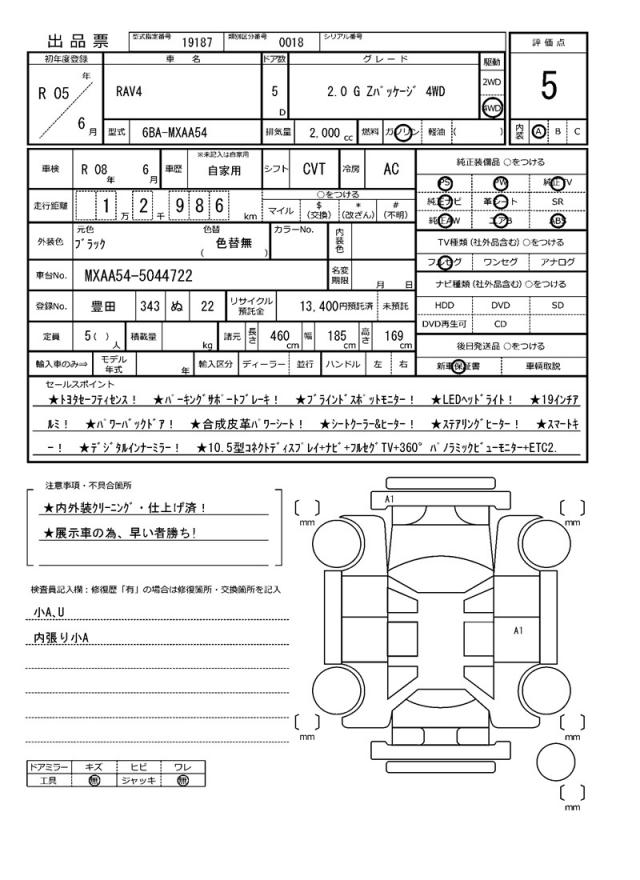 出品票 型式指定番号 19187 類別区分番号 0018 シリアル番号
評価点
5
内装 A B C
初年度登録 車名 ドア数 グレード 駆動
R 05 年 6 月 RAV4 5 D 2.0 G Zﾊﾟｯｹｰｼﾞ 4WD 2WD 4WD
型式 6BA-MXAA54 排気量 2,000 cc 燃料 ガソリン 軽油 ( )
車検 R 08 年 6 月 車歴 ※未記入は自家用 自家用 シフト CVT 冷房 AC
走行距離 1 2 9 8 6 万 千 km ○をつける マイル $ (交換) * (改ざん) # (不明)
外装色 元色 ﾌﾞﾗｯｸ 色替 ( 色替無 ) カラーNo. 内装色
車台No. MXAA54-5044722 名変期限 月 日
登録No. 豊田 343 ぬ 22 リサイクル預託金 13,400円預託済 未預託
定員 5( ) 人 積載量 kg 諸元 長さ 460 cm 幅 185 cm 高さ 169 cm
輸入車のみ⇒ モデル年式 年 輸入区分 ディーラー 並行 ハンドル 左 右
純正装備品 ○をつける
PS PW 純正TV
純正ナビ 革シート SR
純正AW エアB ABS
TV種類(社外品含む) ○をつける
フルセグ ワンセグ アナログ
ナビ種類(社外品含む) ○をつける
HDD DVD SD
DVD再生可 CD
後日発送品 ○をつける
新車保証書 車輌取説
セールスポイント
★トヨタセーフティセンス! ★ﾊﾟｰｷﾝｸﾞｻﾎﾟｰﾄﾌﾞﾚｰｷ! ★ﾌﾞﾗｲﾝﾄﾞｽﾎﾟｯﾄﾓﾆﾀｰ! ★LEDﾍｯﾄﾞﾗｲﾄ! ★19インチア
ルミ! ★ﾊﾟﾜｰﾊﾞｯｸﾄﾞｱ! ★合成皮革ﾊﾟﾜｰｼｰﾄ! ★ｼｰﾄｸｰﾗｰ&ﾋｰﾀｰ! ★ｽﾃｱﾘﾝｸﾞﾋｰﾀｰ! ★スマートキ
ー! ★ﾃﾞｼﾞﾀﾙｲﾝﾅｰﾐﾗｰ! ★10.5型ｺﾈｸﾄﾃﾞｨｽﾌﾟﾚｲ+ﾅﾋﾞ+ﾌﾙｾｸﾞTV+360°ﾊﾟﾉﾗﾐｯｸﾋﾞｭｰﾓﾆﾀｰ+ETC2.
注意事項・不具合箇所
★内外装ｸﾘｰﾆﾝｸﾞ・仕上げ済!
★展示車の為、早い者勝ち!
検査員記入欄：修復歴「有」の場合は修復箇所・交換箇所を記入
小A､U
内張り小A
ドアミラー キズ ヒビ ワレ
工具 無 ジャッキ 無
A1
mm mm
A1
mm mm
mm